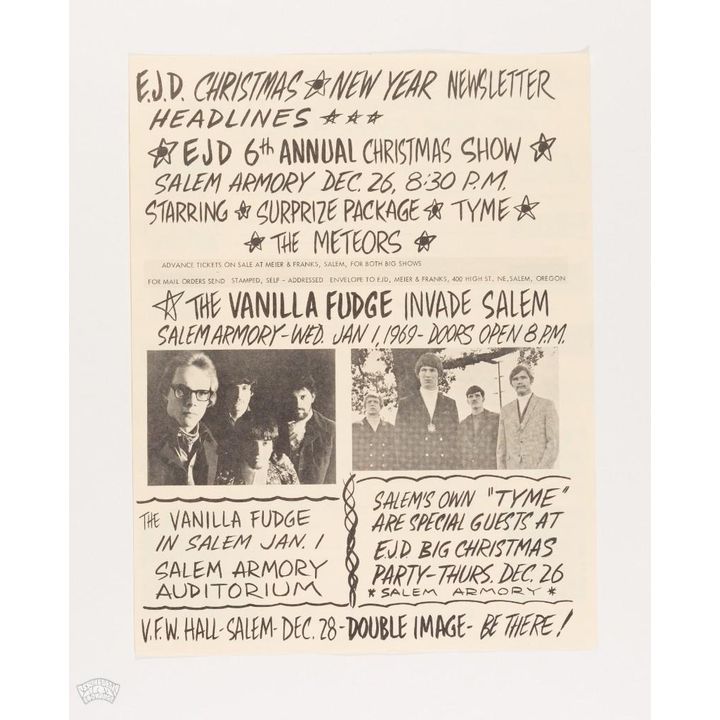 E.J.D. CHRISTMAS ☆ NEW YEAR NEWSLETTER
HEADLINES ☆☆☆
☆ EJD 6th ANNUAL CHRISTMAS SHOW ☆
SALEM ARMORY DEC. 26, 8:30 P.M.
STARRING ☆ SURPRIZE PACKAGE ☆ TYME ☆
☆ THE METEORS ☆
ADVANCE TICKETS ON SALE AT MEIER & FRANKS, SALEM, FOR BOTH BIG SHOWS
FOR MAIL ORDERS SEND STAMPED, SELF - ADDRESSED ENVELOPE TO EJD, MEIER & FRANKS, 400 HIGH ST. NE, SALEM, OREGON
☆ THE VANILLA FUDGE INVADE SALEM
SALEM ARMORY-WED. JAN 1, 1969-DOORS OPEN 8 P.M.
THE VANILLA FUDGE
IN SALEM JAN. 1
SALEM ARMORY
AUDITORIUM
SALEM'S OWN "TYME"
ARE SPECIAL GUESTS AT
EJD BIG CHRISTMAS
PARTY-THURS. DEC. 26
* SALEM ARMORY *
V.F.W. HALL-SALEM-DEC. 28-DOUBLE IMAGE-BE THERE!